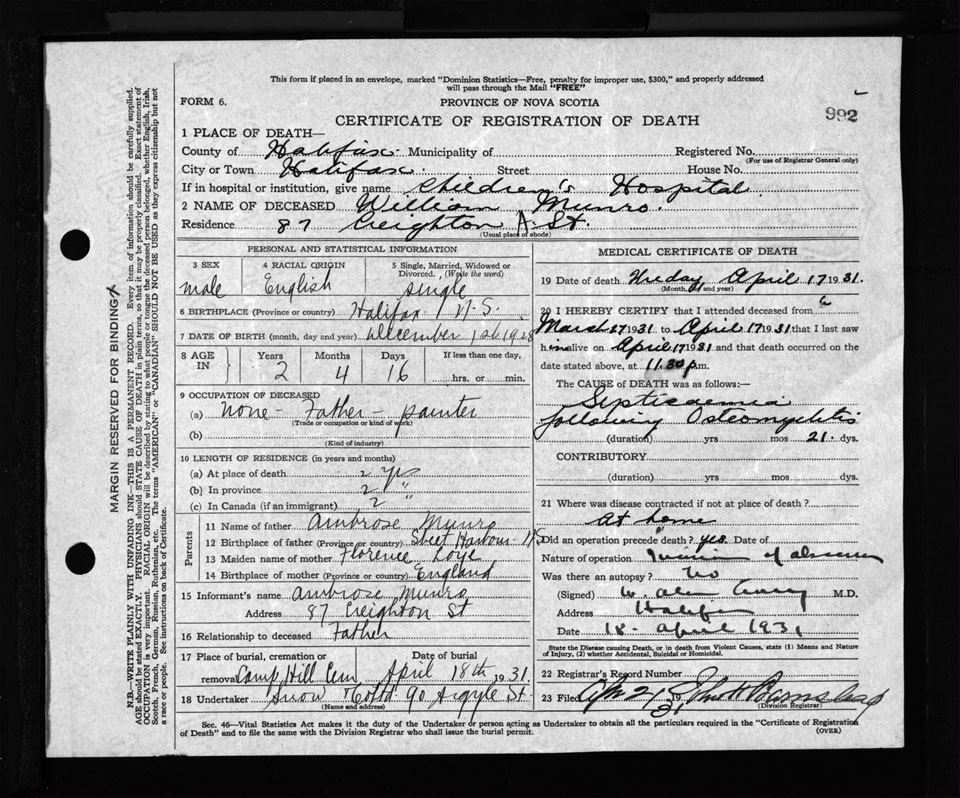 This form if placed in an envelope, marked "Dominion Statistics—Free, penalty for improper use, $300," and properly addressed
will pass through the Mail "FREE"
FORM 6.
PROVINCE OF NOVA SCOTIA
992
CERTIFICATE OF REGISTRATION OF DEATH
1 PLACE OF DEATH—
County of Halifax Municipality of Registered No.
(For use of Registrar General only)
City or Town Halifax Street House No.
If in hospital or institution, give name Children's Hospital
2 NAME OF DECEASED William Munro.
Residence 87 Creighton St.
(Usual place of abode)
PERSONAL AND STATISTICAL INFORMATION
3 SEX 4 RACIAL ORIGIN 5 Single, Married, Widowed or
Divorced. (Write the word)
male English single
6 BIRTHPLACE (Province or country) Halifax N.S.
7 DATE OF BIRTH (month, day and year) December 1st 1928
8 AGE IN Years Months Days If less than one day,
2 4 16 hrs. or min.
9 OCCUPATION OF DECEASED
(a) none - Father - painter
(Trade or occupation or kind of work)
(b)
(Kind of industry)
10 LENGTH OF RESIDENCE (in years and months)
(a) At place of death 2 yrs
(b) In province 2 "
(c) In Canada (if an immigrant) 2 "
Parents
11 Name of father Ambrose Munro
12 Birthplace of father (Province or country) Sheet Harbour N S
13 Maiden name of mother Florence
14 Birthplace of mother (Province or country) England
15 Informant's name Ambrose Munro
Address 87 Creighton St
16 Relationship to deceased Father
17 Place of burial, cremation or Date of burial
removal Camp Hill Cem April 18th 1931.
18 Undertaker Snow & Co Ltd 90 Argyle St
(Name and address)
MEDICAL CERTIFICATE OF DEATH
19 Date of death Friday April 17 1931.
(Month, day and year)
20 I HEREBY CERTIFY that I attended deceased from
March 27 1931 to April 17 1931 that I last saw
him alive on April 17 1931 and that death occurred on the
date stated above, at 11.30 p.m.
The CAUSE OF DEATH was as follows:—
Septicaemia
following Osteomyelitis
(duration) yrs mos 21 dys.
CONTRIBUTORY
(duration) yrs mos dys.
21 Where was disease contracted if not at place of death?
At home
Did an operation precede death? yes. Date of
Nature of operation Incision of abscess
Was there an autopsy? No
(Signed) W. Alan Curry M.D.
Address Halifax
Date 18 April 1931
State the Disease causing Death, or in death from Violent Causes, state (1) Means and Nature
of Injury, (2) whether Accidental, Suicidal or Homicidal.
22 Registrar's Record Number
23 Filed Apr 21 1931
(Division Registrar)
Sec. 46—Vital Statistics Act makes it the duty of the Undertaker or person acting as Undertaker to obtain all the particulars required in the "Certificate of Registration
of Death" and to file the same with the Division Registrar who shall issue the burial permit.
(OVER)
MARGIN RESERVED FOR BINDING
N.B.—WRITE PLAINLY WITH UNFADING INK—THIS IS A PERMANENT RECORD. Every item of information should be carefully supplied.
AGE should be stated EXACTLY. PHYSICIANS should STATE CAUSE OF DEATH in plain terms, so that it may be properly classified. Exact statement of
OCCUPATION is very important. RACIAL ORIGIN will be described by stating to what people or tongue the deceased person belonged, whether English, Irish,
Scotch, French, German, Russian, Ruthenian, etc. The terms "AMERICAN" or "CANADIAN" SHOULD NOT BE USED as they express citizenship but not
a race or people. See instructions on back of Certificate.